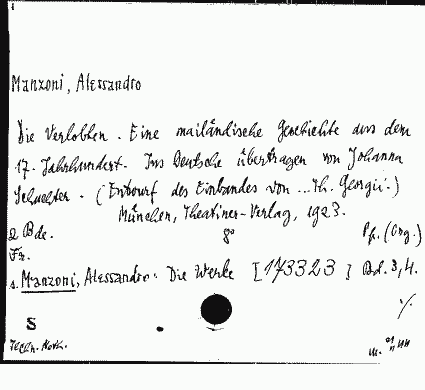 Manzoni, Alessandro
Die Verlobten. Eine mailändische Geschichte aus dem
17. Jahrhundert. Ins Deutsche übertragen von Johanna
Schuchter. (Entwurf des Einbandes von ... Th. Georgii.)
München, Theatiner-Verlag, 1923.
2 Bde. 8° Pp. (Orig.)
Fz.
s. Manzoni, Alessandro: Die Werke [173323] Bd. 3,4.
%
S
Techn. Hoch.